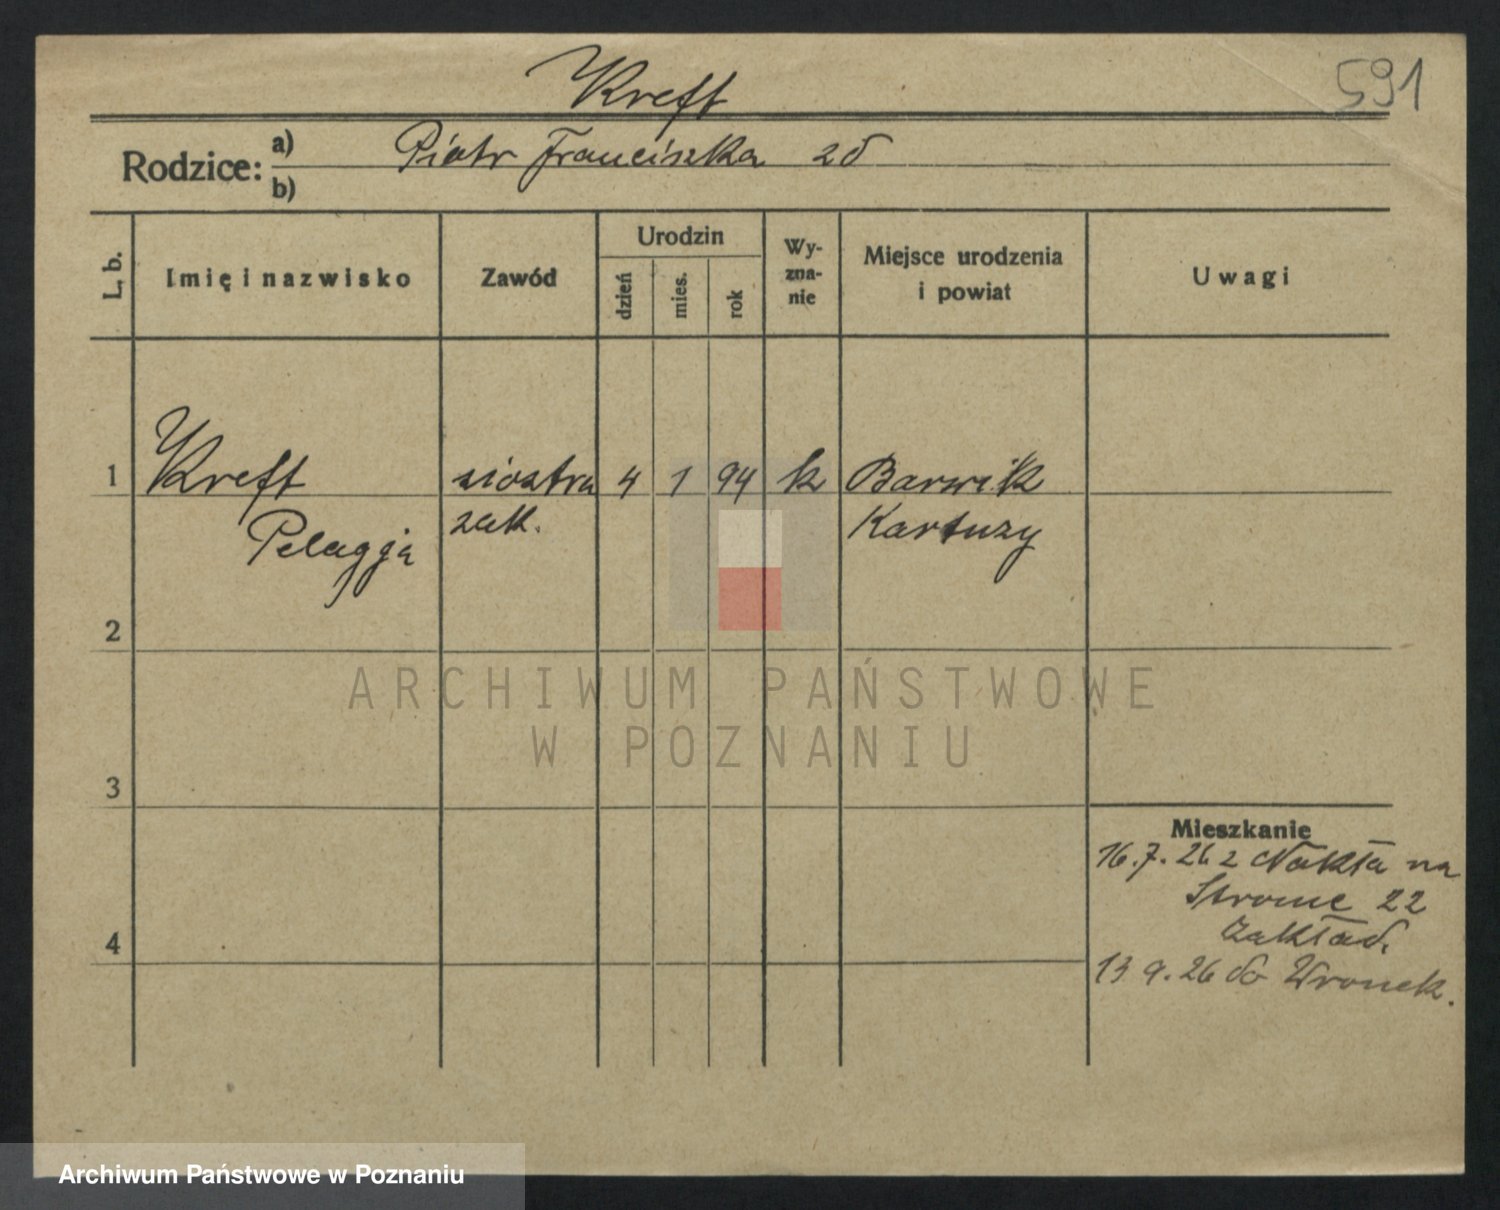 Kreft
591
Rodzice:
a) Piotr Franciszka zd
b)
L. b.
Imię i nazwisko
Zawód
Urodzin
dzień
mies.
rok
Wy-
zna-
nie
Miejsce urodzenia
i powiat
Uwagi
1 Kreft siostra 4 1 94 k Barwik
Pelagja zak. Kartuzy
2
ARCHIWUM PAŃSTWOWE
W POZNANIU
3
Mieszkanie
16.7.26 z Nakła na
Strome 22
Zakład.
4
13 9.26 do Wronek.
Archiwum Państwowe w Poznaniu